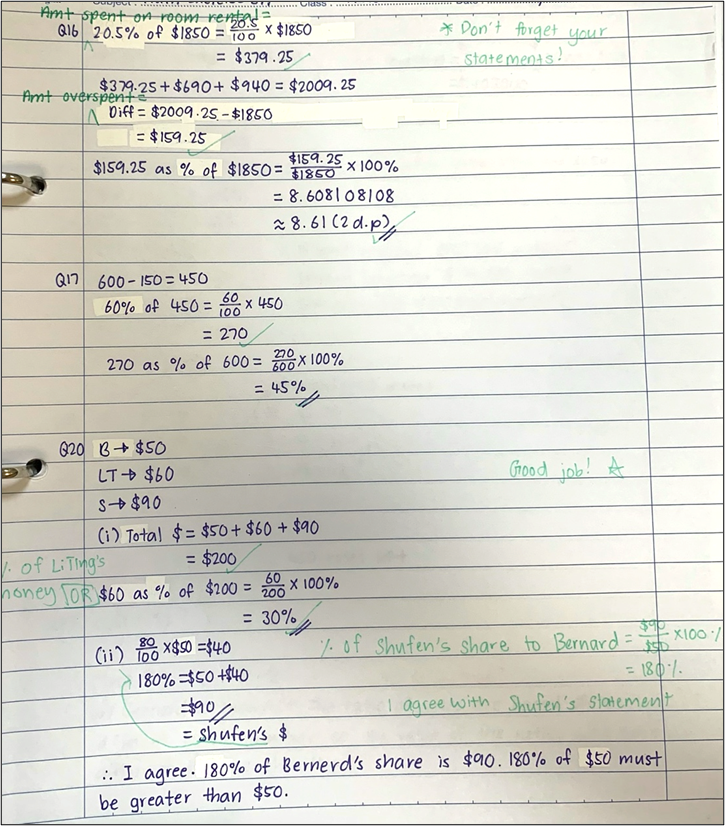 Amt spent on room rental =
Q16 20.5% of $1850 = 20.5/100 × $1850
* Don't forget your
statements!
= $379.25
$379.25 + $690 + $940 = $2009.25
Amt overspent =
Diff = $2009.25 - $1850
= $159.25
$159.25 as % of $1850 = $159.25/$1850 × 100%
= 8.608108108
≈ 8.61 (2 d.p)
Q17 600 - 150 = 450
60% of 450 = 60/100 × 450
= 270
270 as % of 600 = 270/600 × 100%
= 45%
Q20 B → $50
LT → $60
Good job!
S → $90
(i) Total $ = $50 + $60 + $90
= $200
% of LiTing's
money OR $60 as % of $200 = 60/200 × 100%
= 30%
(ii) 80/100 × $50 = $40
% of Shufen's share to Bernard = $90/$50 × 100%
= 180%
180% = $50 + $40
I agree with Shufen's statement
= $90
= Shufen's $
∴ I agree. 180% of Bernerd's share is $90. 180% of $50 must
be greater than $50.